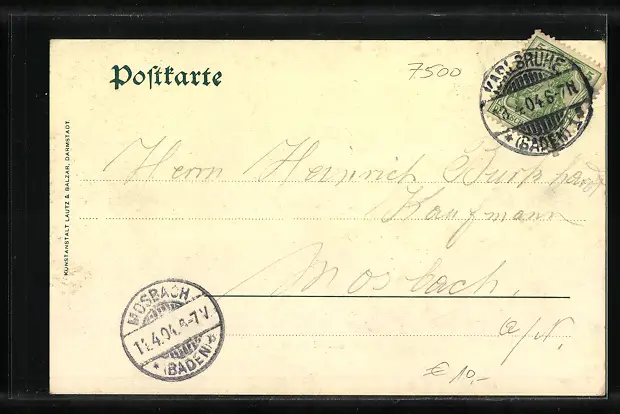 Postkarte
7500
KARLSRUHE
4.04.6-7N
*(BADEN)*
5
KUNSTANSTALT LAUTZ & BALZAR, DARMSTADT.
Herrn Heinrich Burkhardt
Kaufmann
Mosbach,
a/N.
MOSBACH
11.4.04.6-7V.
*(BADEN)*
€ 10,-